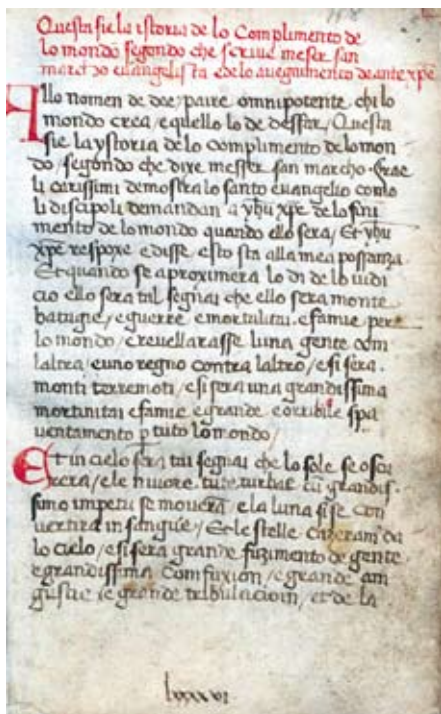 Questa sie la istoria de lo Complimento de
lo mondo segondo che scrive meser san
marcho evangelista e de lo avegnimento de ante xpē
Allo nomen de doe paire omnipotente chi lo
mondo crea / e quello lo de desfar / Questa
sie la ystoria de lo complimento de lo mon
do / segondo che dixe messer san marcho · frae
li carissimi demostra lo santo evangelio como
li discipoli demandan a yhu xpe de lo fini
mento de lo mondo quando ello sera / Et yhu
xpe respoxe e disse esto sta alla mea possanza
Et quando se aproximera lo di de lo iudi
cio ello sera tal segnai che ello sera monte
batagie / e guerre e mortalitai e famie per
lo mondo / e revellarasse luna gente com
laltra / e uno regno contra laltro / e si sera
monti terremoti / e si sera una grandissima
mortinitai e famie e grande e orribile spa
ventamento p tuto lo mondo /
Et in cielo sera tai segnai che lo sole se oscu
rera / e le nivore tute turbae cū grandis
simo impetu se movera e la luna si se con
vertira in sangue / Et le stelle cazeram da
lo cielo / e si sera grande fuzimento de gente
e grandissima comfuxion / e grande am
gustie e grande tribulacioin / et de la
lxxxvi